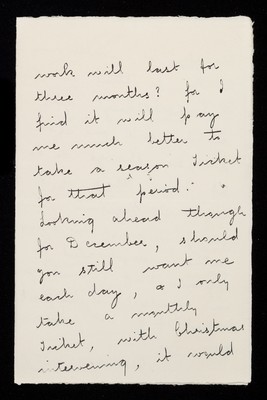 work will last for
three months? for I
find it will pay
me much better to
take a season Ticket
for that period.
Looking ahead though
for December, should
you still want me
each day, & I only
take a monthly
Ticket, with Christmas
intervening, it would